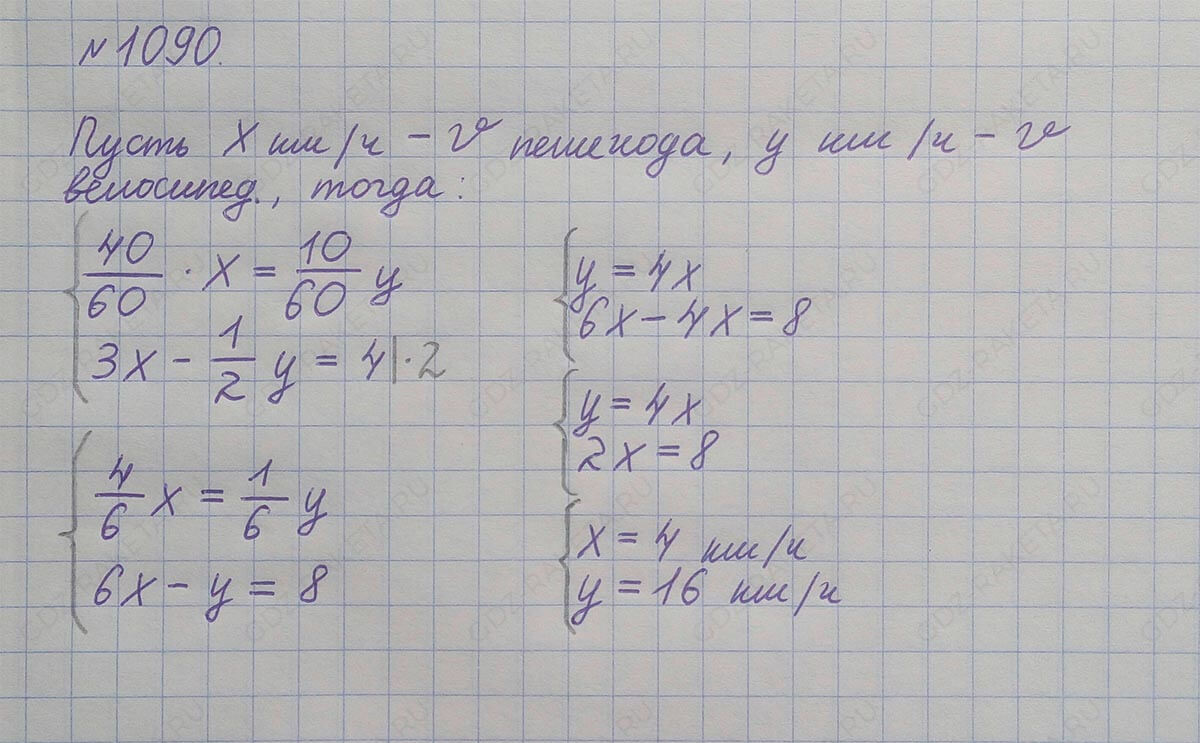 №1090.
Пусть x км/ч – v пешехода, y км/ч – v
велосипед., тогда:
40/60 · x = 10/60 y
3x – 1/2 y = 4 |·2
4/6 x = 1/6 y
6x – y = 8
y = 4x
6x – 4x = 8
y = 4x
2x = 8
x = 4 км/ч
y = 16 км/ч
GDZ-RAKETA.RU